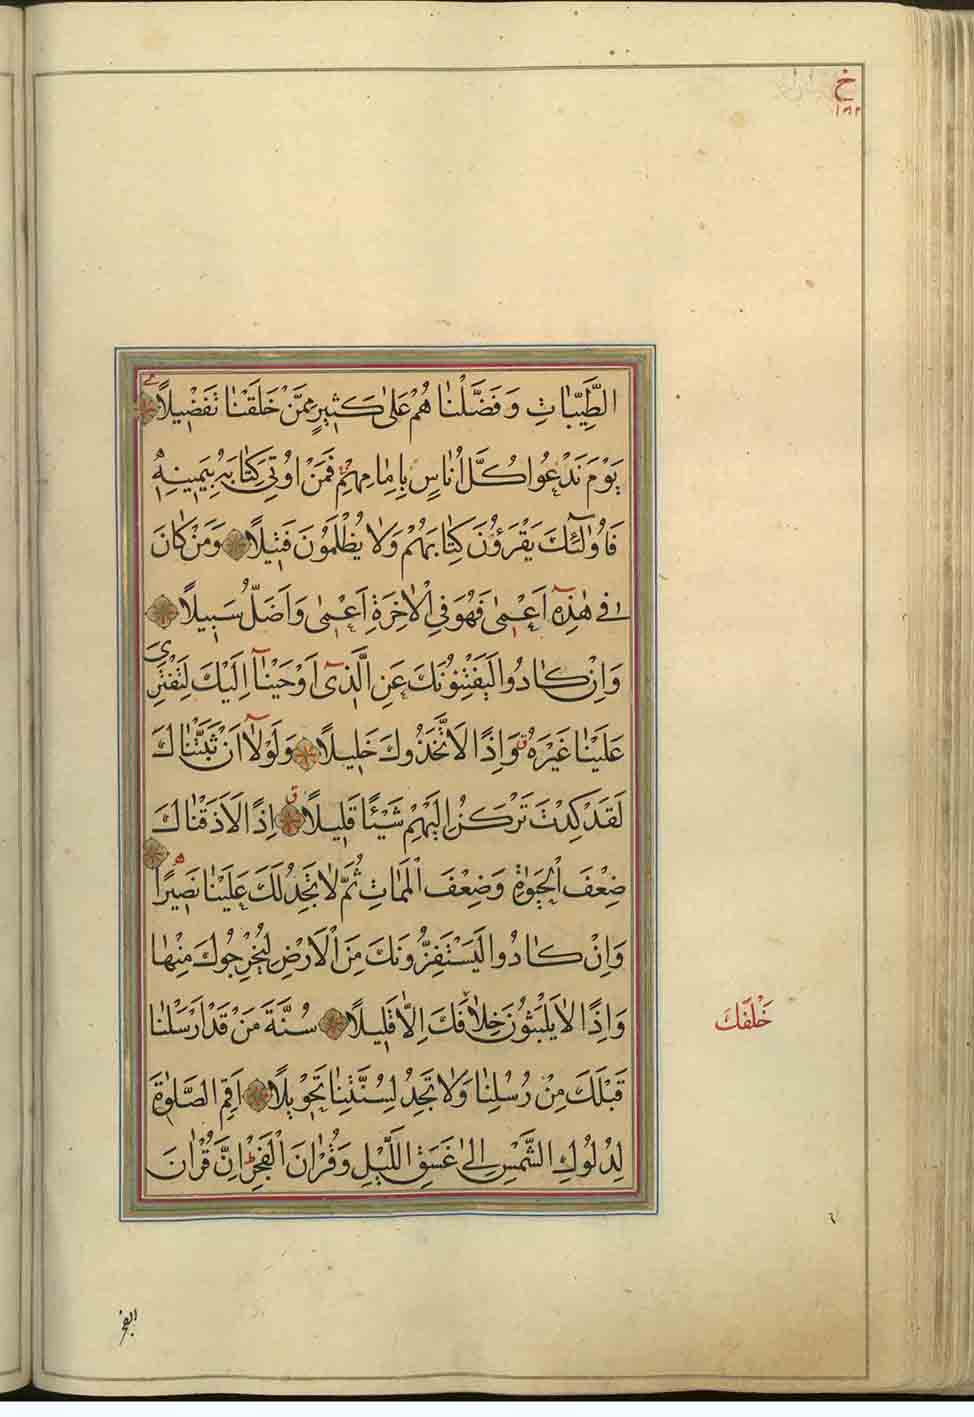 خ
١٨٢
الطَّيِّبَاتِ وَفَضَّلْنَاهُمْ عَلٰى كَثِيرٍ مِمَّنْ خَلَقْنَا تَفْضِيلًا
يَوْمَ نَدْعُوا كُلَّ اُنَاسٍ بِاِمَامِهِمْ فَمَنْ اُوتِيَ كِتَابَهُ بِيَمِينِهِ
فَاُولٰٓئِكَ يَقْرَؤُنَ كِتَابَهُمْ وَلَا يُظْلَمُونَ فَتِيلًا وَمَنْ كَانَ
فِي هٰذِهِٓ اَعْمٰى فَهُوَ فِي الْاٰخِرَةِ اَعْمٰى وَاَضَلُّ سَبِيلًا
وَاِنْ كَادُوا لَيَفْتِنُونَكَ عَنِ الَّذِٓى اَوْحَيْنَٓا اِلَيْكَ لِتَفْتَرِىَ
عَلَيْنَا غَيْرَهُ وَاِذًا لَاتَّخَذُوكَ خَلِيلًا وَلَوْلَٓا اَنْ ثَبَّتْنَاكَ
لَقَدْ كِدْتَ تَرْكَنُ اِلَيْهِمْ شَيْئًا قَلِيلًا اِذًا لَاَذَقْنَاكَ
ضِعْفَ الْحَيٰوةِ وَضِعْفَ الْمَمَاتِ ثُمَّ لَا تَجِدُ لَكَ عَلَيْنَا نَصِيرًا
وَاِنْ كَادُوا لَيَسْتَفِزُّونَكَ مِنَ الْاَرْضِ لِيُخْرِجُوكَ مِنْهَا
وَاِذًا لَا يَلْبَثُونَ خِلَافَكَ اِلَّا قَلِيلًا سُنَّةَ مَنْ قَدْ اَرْسَلْنَا
خَلْفَكَ
قَبْلَكَ مِنْ رُسُلِنَا وَلَا تَجِدُ لِسُنَّتِنَا تَحْوِيلًا اَقِمِ الصَّلٰوةَ
لِدُلُوكِ الشَّمْسِ اِلٰى غَسَقِ اللَّيْلِ وَقُرْاٰنَ الْفَجْرِ اِنَّ قُرْاٰنَ
٦
الفجر